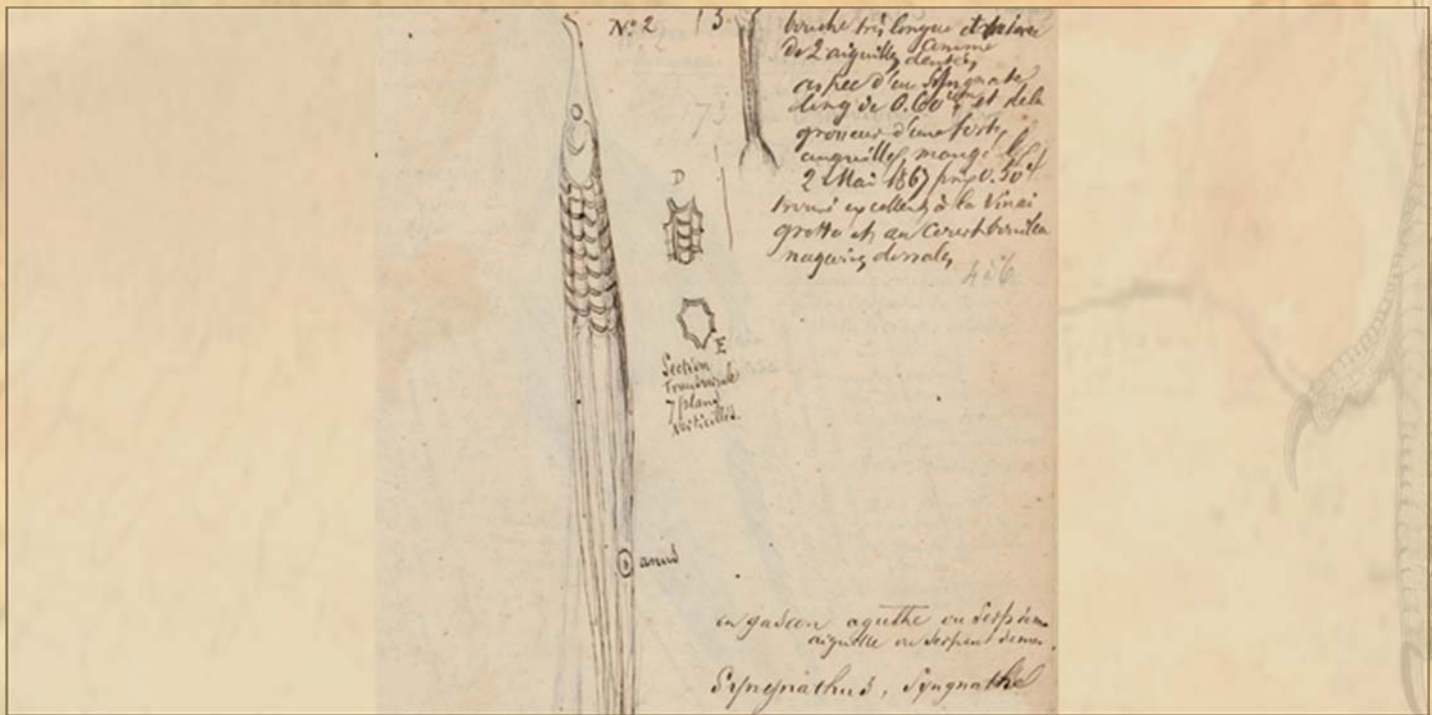 N.º 2
13
bouche très longue et
de 2 aiguilles comme dentés
aspec d'un Syngnate
long de 0.60 et de la
grosseur d'une forte
anguille, mangé le
2 Mai 1867 prix 0.50
trouvé excellent à la Vinai
grette et au Court bouillon
nageoires dorsales
4 à 6
73
D
E
Section
Transversale
7 plans
verticilles.
anus
en gascon aguthe ou Serpèn
aiguille ou Serpent de mer.
Syngnathus, Syngnathe